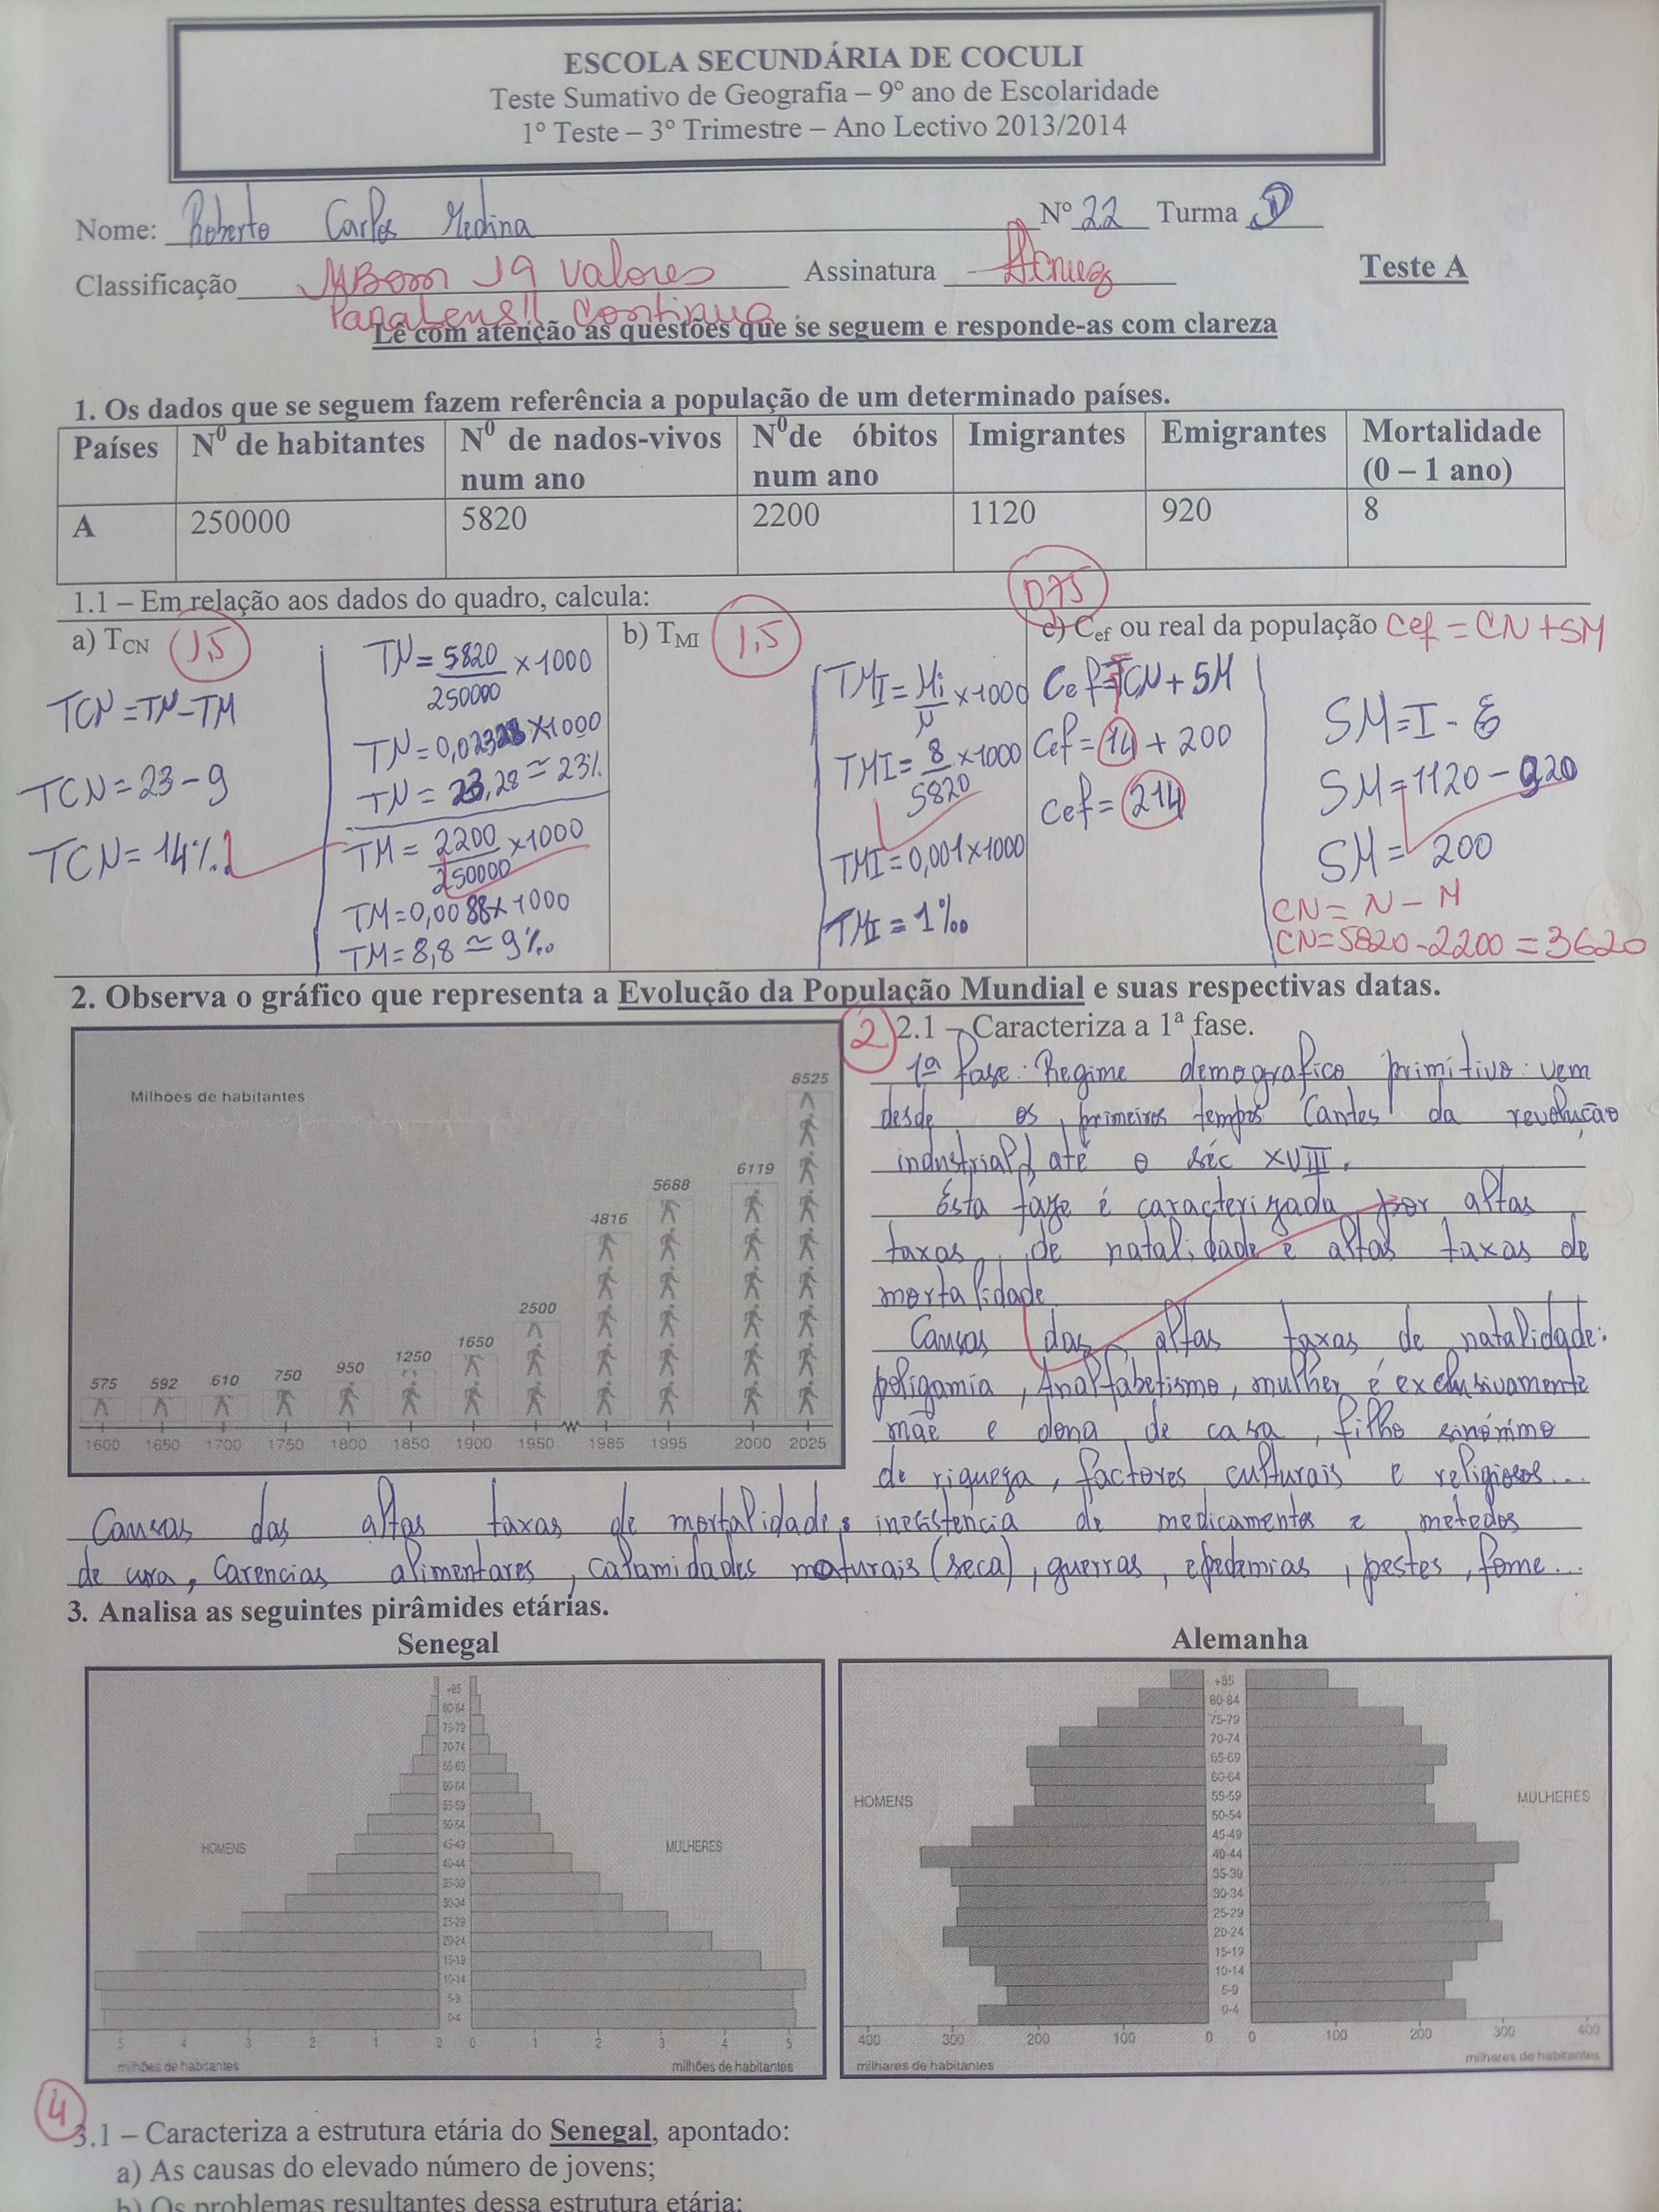 ESCOLA SECUNDÁRIA DE COCULI
Teste Sumativo de Geografia – 9º ano de Escolaridade
1º Teste – 3º Trimestre – Ano Lectivo 2013/2014
Nome: Roberto Carlos Medina Nº 22 Turma D
Classificação MBom 19 valores Assinatura Teste A
Parabens!! Continua.
Lê com atenção as questões que se seguem e responde-as com clareza
1. Os dados que se seguem fazem referência a população de um determinado países.
Países Nº de habitantes Nº de nados-vivos num ano Nº de óbitos num ano Imigrantes Emigrantes Mortalidade (0 – 1 ano)
A 250000 5820 2200 1120 920 8
1.1 – Em relação aos dados do quadro, calcula:
a) TCN 1,5
TCN = TN – TM
TCN = 23 – 9
TCN = 14%.
TN = 5820/250000 × 1000
TN = 0,02328 × 1000
TN = 23,28 ≃ 23%
TM = 2200/250000 × 1000
TM = 0,0088 × 1000
TM = 8,8 ≃ 9‰
b) TMI 1,5
TMI = Mi/N × 1000
TMI = 8/5820 × 1000
TMI = 0,001 × 1000
TMI = 1‰
075
c) Cef ou real da população Cef = CN + SM
Cef = TCN + SM
Cef = 14 + 200
Cef = 214
SM = I - E
SM = 1120 – 920
SM = 200
CN = N – M
CN = 5820 – 2200 = 3620
2. Observa o gráfico que representa a Evolução da População Mundial e suas respectivas datas.
Milhões de habitantes
575 592 610 750 950 1250 1650 2500 4816 5688 6119 8525
1600 1650 1700 1750 1800 1850 1900 1950 1985 1995 2000 2025
2
2.1 – Caracteriza a 1ª fase.
1ª fase: Regime demografico primitivo: vem
desde os primeiros tempos (antes da revolução
industrial) até o séc XVIII.
Esta faze é caracterizada por altas
taxas de natalidade e altas taxas de
mortalidade
Causas das altas taxas de natalidade:
poligamia, Analfabetismo, mulher é exclusivamente
mãe e dona de casa, filho sinónimo
de riqueza, factores culturais e religiosos...
Causas das altas taxas de mortalidade: inesistencia de medicamentos e metedos
de cura, Carencias alimentares, calamidades naturais (seca), guerras, epedemias, pestes, fome...
3. Analisa as seguintes pirâmides etárias.
Senegal
HOMENS MULHERES
+85
80-84
75-79
70-74
65-69
60-64
55-59
50-54
45-49
40-44
35-39
30-34
25-29
20-24
15-19
10-14
5-9
0-4
5 4 3 2 1 0 0 1 2 3 4 5
milhões de habitantes milhões de habitantes
Alemanha
HOMENS MULHERES
+85
80-84
75-79
70-74
65-69
60-64
55-59
50-54
45-49
40-44
35-39
30-34
25-29
20-24
15-19
10-14
5-9
0-4
400 300 200 100 0 0 100 200 300 400
milhares de habitantes milhares de habitantes
4
3.1 – Caracteriza a estrutura etária do Senegal, apontado:
a) As causas do elevado número de jovens;
b) Os problemas resultantes dessa estrutura etária;